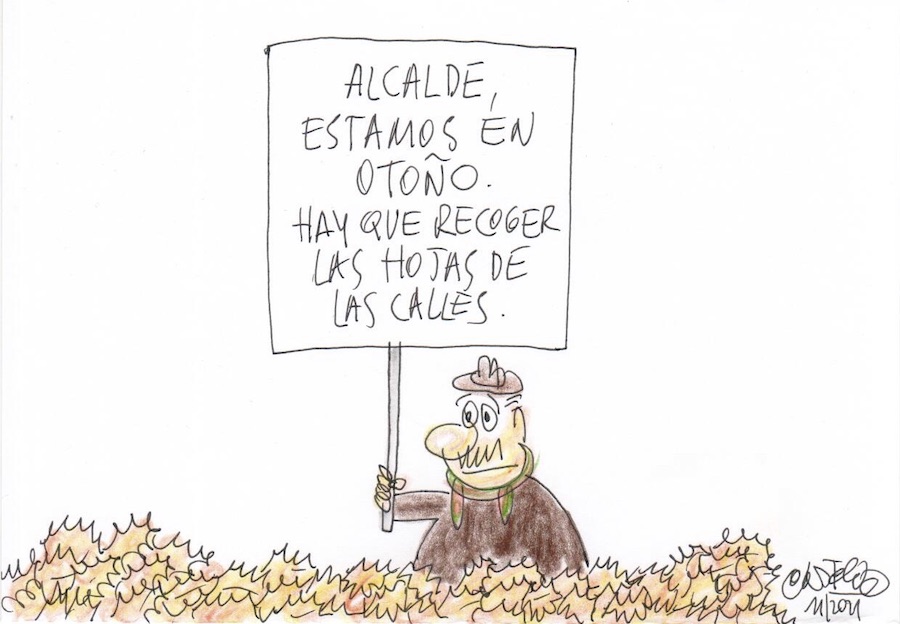 ALCALDE,
ESTAMOS EN
OTOÑO.
HAY QUE RECOGER
LAS HOJAS DE
LAS CALLES.
11/2021